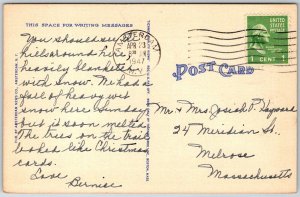 THIS SPACE FOR WRITING MESSAGES
You should see
hills around here
heavily blanketed
with snow. We had a
fall of heavy wet
snow here Sunday
but is soon melted.
The trees on the trail
looked like Christmas
cards.
Love
Bernise
APR 23
1947
1 CENT 1
POST CARD
Mr & Mrs Josiah P. Haywood
24 Meridian St.
Melrose
Massachusetts